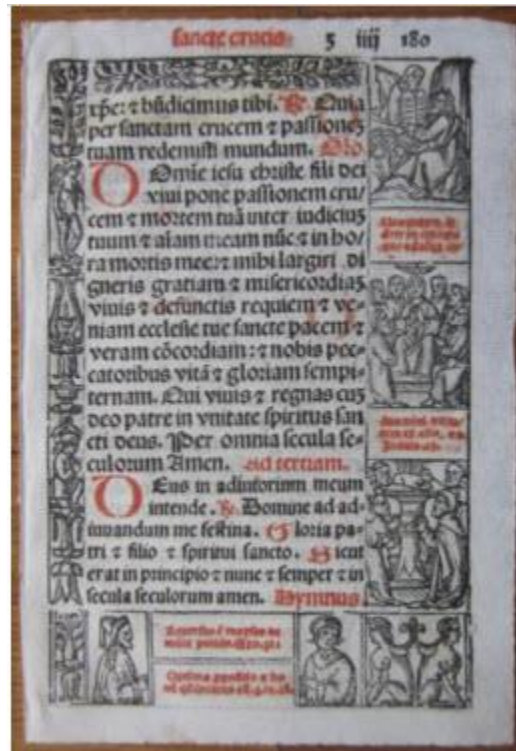 sancte crucis 5 iiij 180
xp̄e: ⁊ bn̄dicimus tibi. ℟. Quia
per sanctam crucem ⁊ passionez
tuam redemisti mundum. Oro.
Domīe iesu christe fili dei
viui pone passionem cru-
cem ⁊ mortem tuā inter iudiciuz
tuum ⁊ aīam meam nūc ⁊ in ho-
ra mortis mee: ⁊ mihi largiri di
gneris gratiam ⁊ misericordiaz
viuis ⁊ defunctis requiem ⁊ ve-
niam ecclesie tue sancte pacem ⁊
veram cōcordiam: ⁊ nobis pec-
catoribus vitā ⁊ gloriam sempi-
ternam. Qui viuis ⁊ regnas cuz
deo patre in vnitate spiritus san
cti deus. Per omnia secula se-
culorum Amen. Ad tertiam.
Deus in adiutorium meum
intende. ℟. Domine ad ad-
iuuandum me festina. Gloria pa-
tri ⁊ filio ⁊ spiritui sancto. Sicut
erat in principio ⁊ nunc ⁊ semper ⁊ in
secula seculorum amen. Hymnus.